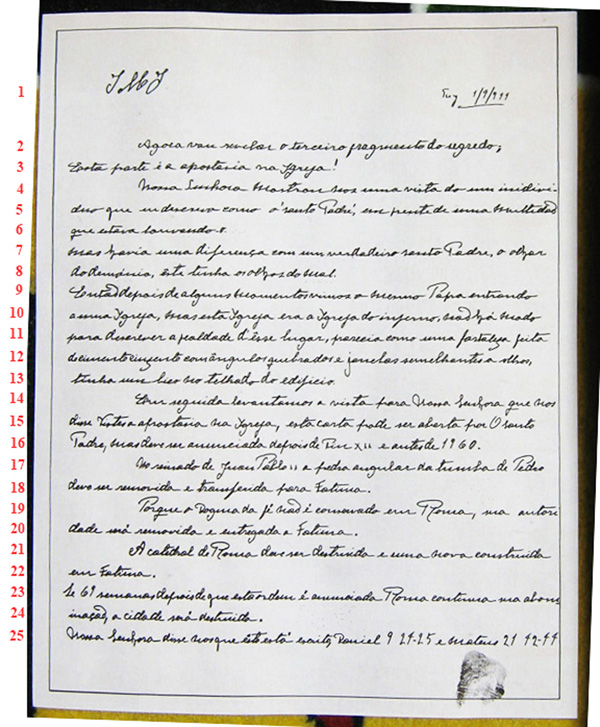 1 JMJ Tuy 1/9/944
2 Agora vou revelar o terceiro fragmento do segredo;
3 Esta parte é a apostasia na Igreja!
4 Nossa Senhora mostrou nos uma vista do um individ-
5 duo que eu descrevo como o 'santo Padre', em frente de uma multidad
6 que estava louvando-o.
7 Mas havia uma diferença com um verdadeiro santo Padre, o olhar
8 do demónio, éste tinha os olhos do mal.
9 Entad depois de alguns momentos vimos o mesmo Papa entrando
10 a uma Igreja, mas esta Igreja era a Igreja do inferno, nad há modo
11 para descrever a fealdade d'ésse lugar, parecia como uma fortaleza feita
12 de cimento cinzento com ângulos quebrados e janelas semelhantes a olhos,
13 tinha um bico no telhado do edificio.
14 Em seguida levantamos a vista para Nossa Senhora que nos
15 disse Vistes a apostasia na Igreja, esta carta pode ser aberta por O santo
16 Padre, mas deve ser anunciada depois de Pio XII e antes de 1960.
17 No reinado de Juan Pablo II a pedra angular da tumba de Pedro
18 deve ser removida e transferida para Fatima.
19 Porque o Dogma da fé nad é conservado em Roma, sua autori-
20 dade será removida e entregada a Fatima.
21 A catedral de Roma deve ser destruida e uma nova construida
22 em Fatima.
23 Se 69 semanas depois de que esta ordem é anunciada Roma continua sua abom
24 inaçad, a cidade será destruida.
25 Nossa Senhora disse nos que éste está escrito, Daniel 9 24-25 e Mateus 21 42-44